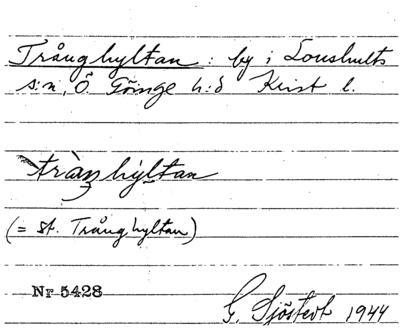 Trånghyltan : by i Lonshults
s:n, Ö. Göinge h:d Krist l.
tràŋhyltan
(= st. Trånghyltan)
Nr 5428
G. Sjöstedt 1944